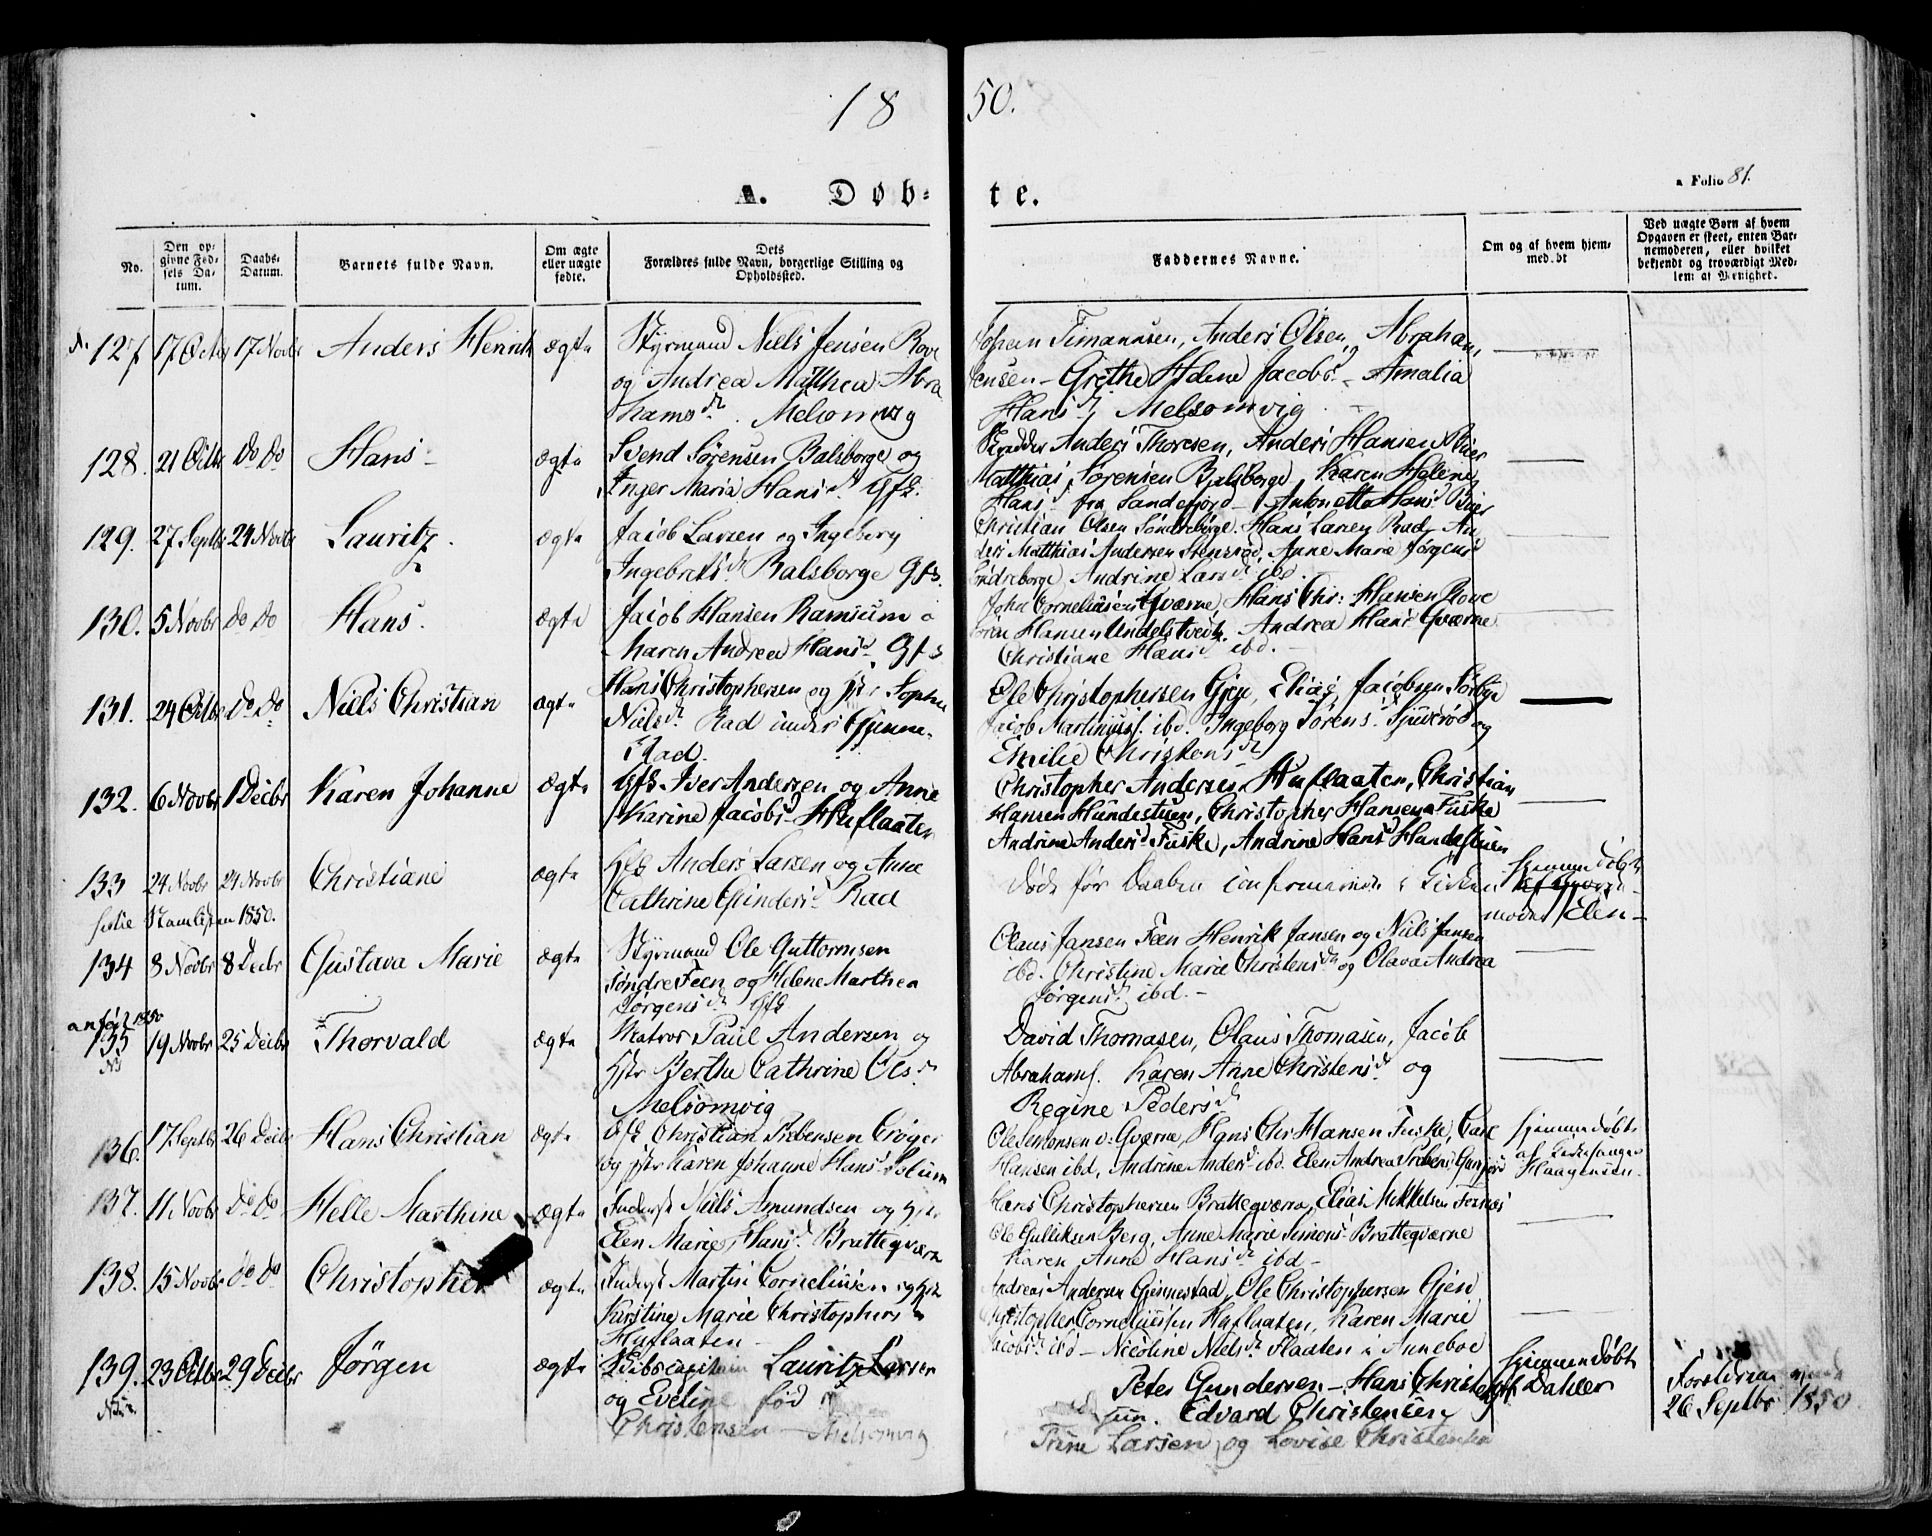 18 50.
A. Døb- te.
a Folio 81.
No.
Den opgivne Fødsels Datum.
Daabs-Datum.
Barnets fulde Navn.
Om ægte eller uægte fødte.
Dets Forældres fulde Navn, borgerlige Stilling og Opholdssted.
Faddernes Navne.
Om og af hvem hjemmedøbt
Ved uægte Børn af hvem Opgaven er skeet, enten Barnemoderen, eller hvilket bekjendt og troværdigt Medlem af Menighed.
127 17 Octbr 17 Novbr Anders Henrik ægte Styrmand Niels Jensen Rove
og Andrea Mathea Abra
hamsdr. Melsomvig
Johan Timannsen, Anders Olsen, Abraham
Jensen - Grethe Helene Jacobsd - Amalia
Hansdr, Melsomvig
128. 21 Octbr Do Do Hans - ægte Svend Sørensen Balsborge og
Inger Maria Hansd. Gfs.
Anders Thoresen, Anders Hansen
Matthias Sørensen Balsborge, Karen Helene
Hansd fra Sandefjord - Antonette Hansd
129. 27 Septbr 24 Novbr Lauritz. ægte Jacob Larsen og Ingeborg
Ingebretsdr. Balsborge Gfs.
Christian Olsen Søndreborge. Hans Larsen Rad An
ders Matthias Andersen Stensrød, Anne Marie Jørgensd
Søndreborge Andrine Larsd ibd.
130. 5 Novbr Do Do Hans. ægte Jacob Hansen Ramsum o
Maren Andrea Hansd. Gfs
John Corneliusen Gværne, Hans Chr: Hansen Rove
Søren Hansen Undelstvedt. Andrea Hansd Gværne
Christiane Hansd ibd. -
131. 24 Octbr Do Do Niels Christian ægte Hans Christophersen og Sophie
Nielsdr. Rad under Gjenne-
Rad.
Ole Christophersen Gjeje, Elias Jacobsen Sørbye
Jacob Martiniusf. ibd. Ingeborg Sørensd. og
Emilie Christensdr
132. 6 Novbr 1 Decbr Karen Johanne Ægte Gfs Iver Andersen og Anne
Karine Jacobsd Huflaaten
Christopher Andersen Huflaaten, Christian
Hansen Hundestuen, Christopher Hansen Fuske
Andrine Andersd Fuske, Andrine Hansd Hundestuen
133 24 Novbr 24 Novbr Christiane ægte Gfs Anders Larsen og Anne
Cathrine Gundersd. Rad
Døde før Daaben i Kirken
hjemmedøbt
moder Elen -
1850.
134 8 Novbr 8 Decbr Gustava Marie ægte Styrmand Ole Guttormsen
Søndre Feen og Helene Marthea
Jørgensdr. Gfs
Olaus Jansen Feen Henrik Jansen og Niels Jansen
ibd. Christine Marie Christensdr og Olava Andrea
Jørgensd. ibd. -
1850
135 19 Novbr 25 Decbr Thorvald ægte Matros Paul Andersen og
Berthe Cathrine Olsdr.
Melsomvig
David Thomasen, Olaus Thomasen, Jacob
Abrahamf. Karen Anne Christensd. og
Regine Pedersdr
136. 17 Septbr 26 Decbr Hans Christian ægte Gfs Christian Prebensen Crøger
og Karen Johanne Hansd. Solum
Ole Simonsen Gværne, Hans Chr Hansen Fuske, Carl
Hansen ibd, Andrine Andersd ibd. Elen Andrea Prebensd
hjemmedøbt
af Kirkesanger
Haagensen -
137. 11 Novbr Do Do Helle Marthine Ægte Inderst Niels Amundsen og
Elen Marie Hansd. Brattegværn
Hans Christophersen Brattegværne, Elias Mikkelsen Fornæs
Ole Gulliksen Berg, Anne Marie Simonsd Brattegværne
Karen Anne Hansdr ibd -
138. 15 Novbr Do Do Christopher ægte Inderst Martin Corneliusen og
Kirstine Marie Christophersd
Huflaaten -
Andreas Andersen Gjennestad, Ole Christophersen Gjen
Christopher Corneliussen Huflaaten, Karen Marie
Jacobsd. ibd - Nicoline Nielsdr Flaaten i Anneboe
139. 23 Octbr 29 Decbr Jørgen ægte Skibscapitain Lauritz Larsen
og Eveline fød
Christensen - Melsomvig
Peter Gundersen - Hans Christensen
jun. Edvard Christensen
Trine Larsen og Lovise Christensen
hjemmedøbt
af Dahler
Forældrene
26 Septbr 1850.